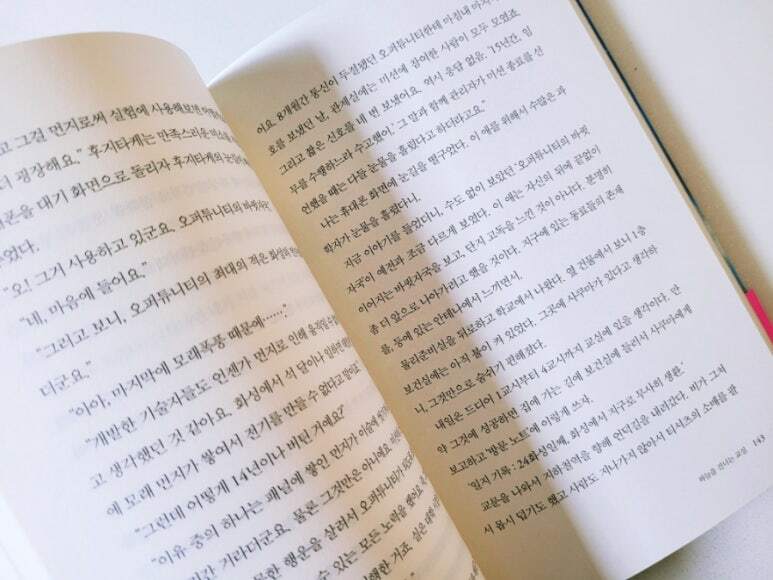 고 그걸 먼지로써 실험에 사용해보면
더 굉장해요." 후지타케는 만족스러운
폰을 대기 화면으로 돌리자 후지타케의
었다.
"오! 그거 사용하고 있군요. 오퍼튜니티의 바퀴자국."
"네, 마음에 들어요."
"그리고 보니, 오퍼튜니티의 최대의 적은 화성의
더군요."
"아아, 마지막에 모래폭풍 때문에……."
"개발한 기술자들도 언젠가 먼지로 인해 움직일
고 생각했던 것 같아요. 화성에서 석 달이나
에 모래 먼지가 쌓여서 전기를 만들 수 없다고 말이요."
"그런데 어떻게 14년이나 버틴 거예요?"
"이유 중의 하나는 패널에 쌓인 먼지가
간 거라더군요. 물론 그것만은 아니에요.
못한 행운을 살려서 오퍼튜니티가
수 있는 모든 노력을 했어요.
한 거죠.
어요. 8개월간 통신이 두절됐던 오퍼튜니티한테 마침내 마지막
호를 보냈던 날, 관제실에는 미션에 참여한 사람이 모두 모였죠.
그리고 짧은 신호를 네 번 보냈어요. 역시 응답 없음. '15년간, 임
무를 수행하느라 수고했어.' 그 말과 함께 관리자가 미션 종료를 선
언했을 때는 다들 눈물을 흘렸다고 하더라고요."
나는 휴대폰 화면에 눈길을 떨구었다. 이 애를 위해서 수많은 과
학자가 눈물을 흘렸다니.
지금 이야기를 들었더니, 수도 없이 보았던 '오퍼튜니티의 바큇
자국이 예전과 조금 다르게 보였다. 이 애는 자신의 뒤에 끝없이
이어지는 바큇자국을 보고, 단지 고독을 느낀 것이 아니다. 분명히
좀 더 앞으로 나아가려고 했을 것이다. 지구에 있는 동료들의 존재
를, 등에 있는 안테나에서 느끼면서.
물리준비실을 뒤로하고 학교에서 나왔다. 옆 건물에서 보니 1층
보건실에는 아직 불이 켜 있었다. 그곳에 사쿠마가 있다고 생각하
니, 그것만으로 숨쉬기 편해졌다.
내일은 드디어 1교시부터 4교시까지 교실에 있을 생각이다. 만
약 그것에 성공하면 집에 가는 길에 보건실에 들러서 사쿠마에게
보고하고 '방문 노트'에 이렇게 쓰자.
'일지 기록 : 24화성일째, 화성에서 지구로 무사히 생환.'
교문을 나와서 지하철역을 향해 언덕길을 내려갔다. 비가 그쳐
서 몹시 덥기도 했고 사람도 지나가지 않아서 티셔츠의 소매를 팔
하늘을 건너는 교실 143